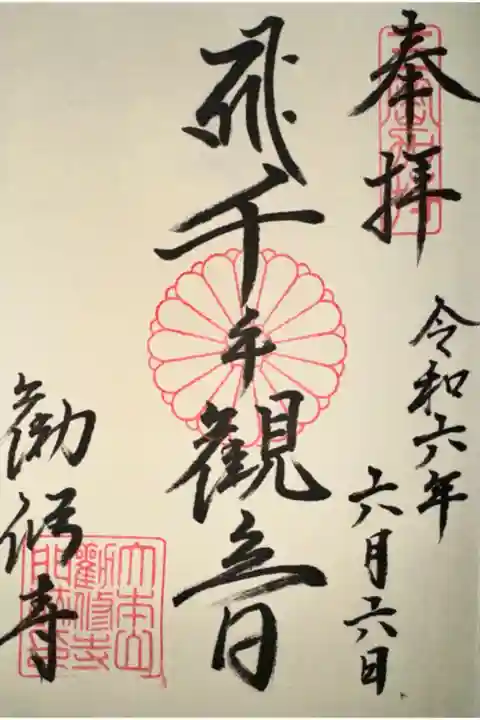 奉拝
令和六年
六月六日
千手観音
勧修寺
大本山
勸修寺